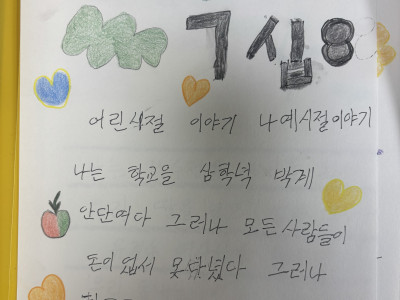 7십8
어린식절 이야기 나 예시절이야기
나는 학교을 삼학녁 박게
안단여다 그러나 모든 사람들이
돈이 업서 못 그러나